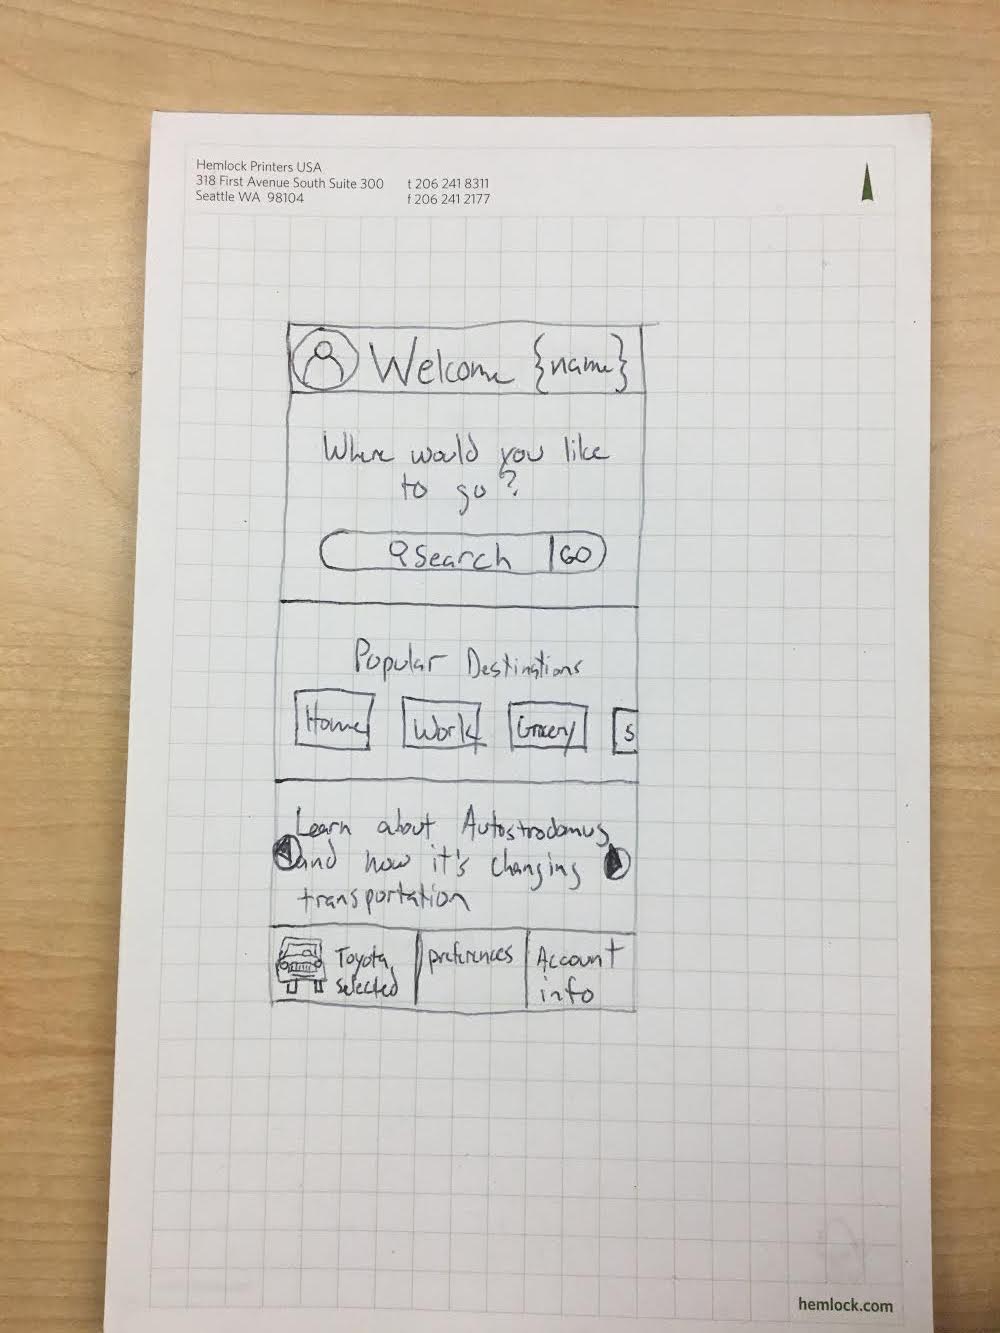 Hemlock Printers USA
318 First Avenue South Suite 300 t 206 241 8311
Seattle WA 98104 f 206 241 2177
Welcome {name}
Where would you like
to go?
Search GO
Popular Destinations
Home Work Grocery S
Learn about Autostrodamus
and how it's changing
transportation
Toyota selected
preferences
Account info
hemlock.com